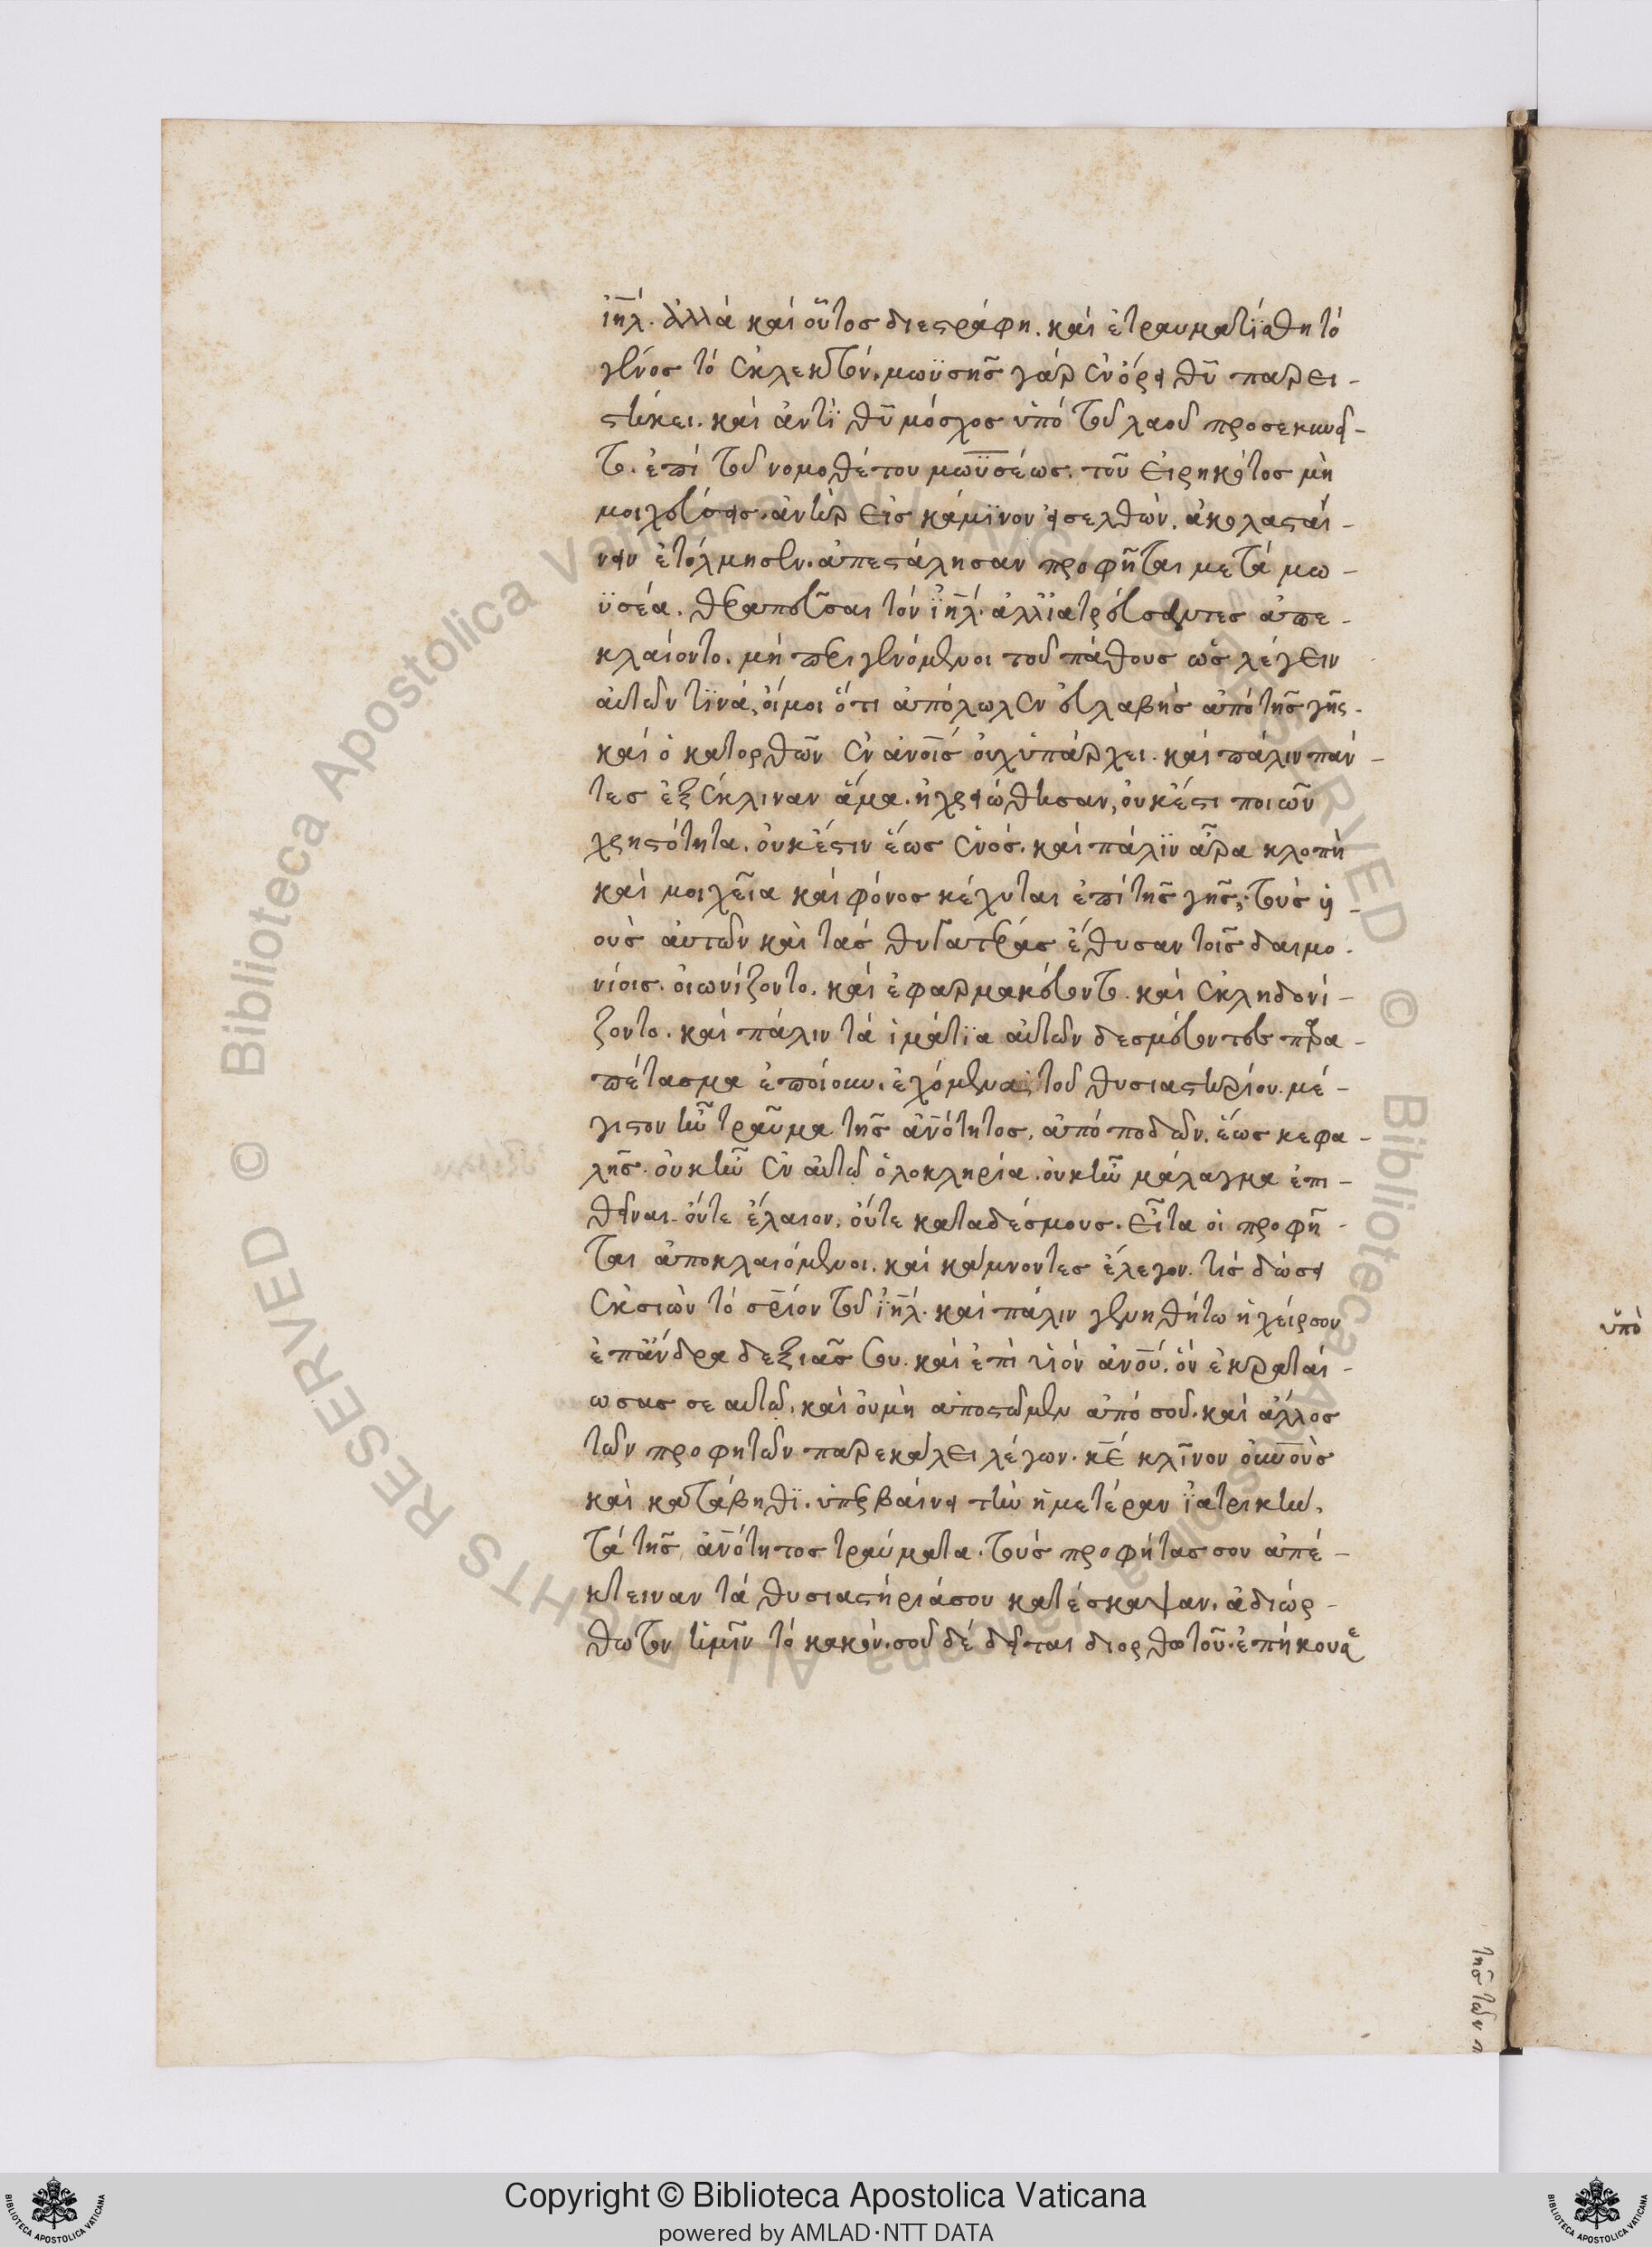 ἰη̅λ. ἀλλὰ καὶ οὗτος διεστράφη. καὶ ἐτραυματίσθη τὸ
γένος τὸ ἐκλεκτόν. μωϋσῆς γὰρ ἐν ὄρει θυ̅ παρει-
στήκει. καὶ ἀντὶ θυ̅ μόσχος ὑπὸ τοῦ λαοῦ προσεκυνεῖ-
το. ἐπὶ τοῦ νομοθέτου μωϋσέως. τοῦ εἰρηκότος μὴ
μοιχεύσεις. ἀνὴρ εἰς κάμϊνον εἰσελθὼν. ἀκολασταί-
νειν ἐτόλμησεν. ἀπεστάλησαν προφῆται μετὰ μω-
ϋσέα. θεραπεῦσαι τὸν ἰη̅λ. ἀλλ' ἰατρεύσαντες ἀπε-
κλαίοντο. μὴ περιγενόμενοι τοῦ πάθους ὡς λέγειν
αὐτῶν τϊνά, οἴμοι ὅτι ἀπόλωλεν εὐλαβὴς ἀπὸ τῆς γῆς.
καὶ ὁ κατορθῶν ἐν ἀνοις̅ οὐχ ὑπάρχει. καὶ πάλιν πάν-
τες ἐξέκλιναν ἅμα. ἠχρειώθησαν, οὐκ ἔστι ποιῶν
χρηστότητα. οὐκ ἔστιν ἕως ἑνός. καὶ πάλϊν ἀρα κλοπὴ
καὶ μοιχεῖα καὶ φόνος κέχυται ἐπὶ τῆς γῆς. τοὺς υἱ-
οὺς αὐτῶν καὶ τὰς θυγατέρας ἔθυσαν τοῖς δαιμο-
νίοις. οἰωνίζοντο. καὶ ἐφαρμακεύοντο. καὶ ἐκληδονί-
ζοντο. καὶ πάλιν τὰ ἱμάτϊα αὐτῶν δεσμεύοντες παρα-
πέτασμα ἐποίουν. ἐχόμενα τοῦ θυσιαστηρίου. μέ-
γιστον ἦν τραῦμα τῆς ἀν̅ότητος, ἀπὸ ποδῶν, ἕως κεφα-
λῆς. οὐκ ἦν ἐν αὐτῷ ὁλοκληρία. οὐκ ἦν μάλαγμα ἐπι-
θεῖναι. οὔτε ἔλαιον. οὔτε καταδέσμους. εἶτα οἱ προφῆ-
ται ἀποκλαιόμενοι. καὶ κάμνοντες ἔλεγον. τίς δώσει
ἐκ σιὼν τὸ σρ̅ίον τοῦ ἰη̅λ. καὶ πάλιν γενηθήτω ἡ χείρ σου
ἐπ' ἄνδρα δεξιᾶς σου. καὶ ἐπὶ υἱὸν ἀνο̅υ. ὃν ἐκραταί-
ωσας σεαυτῷ. καὶ οὐ μὴ ἀποστῶμεν ἀπὸ σοῦ. καὶ ἄλλος
τῶν προφητῶν παρεκάλει λέγων. κε̅ κλῖνον οὐν̅οὺς
καὶ κατάβηθϊ. ὑπερβαίνει τὴν ἡμετέραν ϊατρικήν.
τὰ τῆς ἀν̅ότητος τραύματα. τοὺς προφήτας σου ἀπέ-
κτειναν τὰ θυσιαστήριά σου κατέσκαψαν. ἀδιόρ-
θωτον ἡμῖν τὸ κακόν. σοῦ δὲ δεῖται διορθωτοῦ. ἐπήκουσε
ὑπὸ
τῆς τῶν π
Copyright © Biblioteca Apostolica Vaticana
powered by AMLAD·NTT DATA
© Biblioteca Apostolica Vaticana ALL RIGHTS RESERVED © Biblioteca Apostolica Vaticana ALL RIGHTS RESERVED